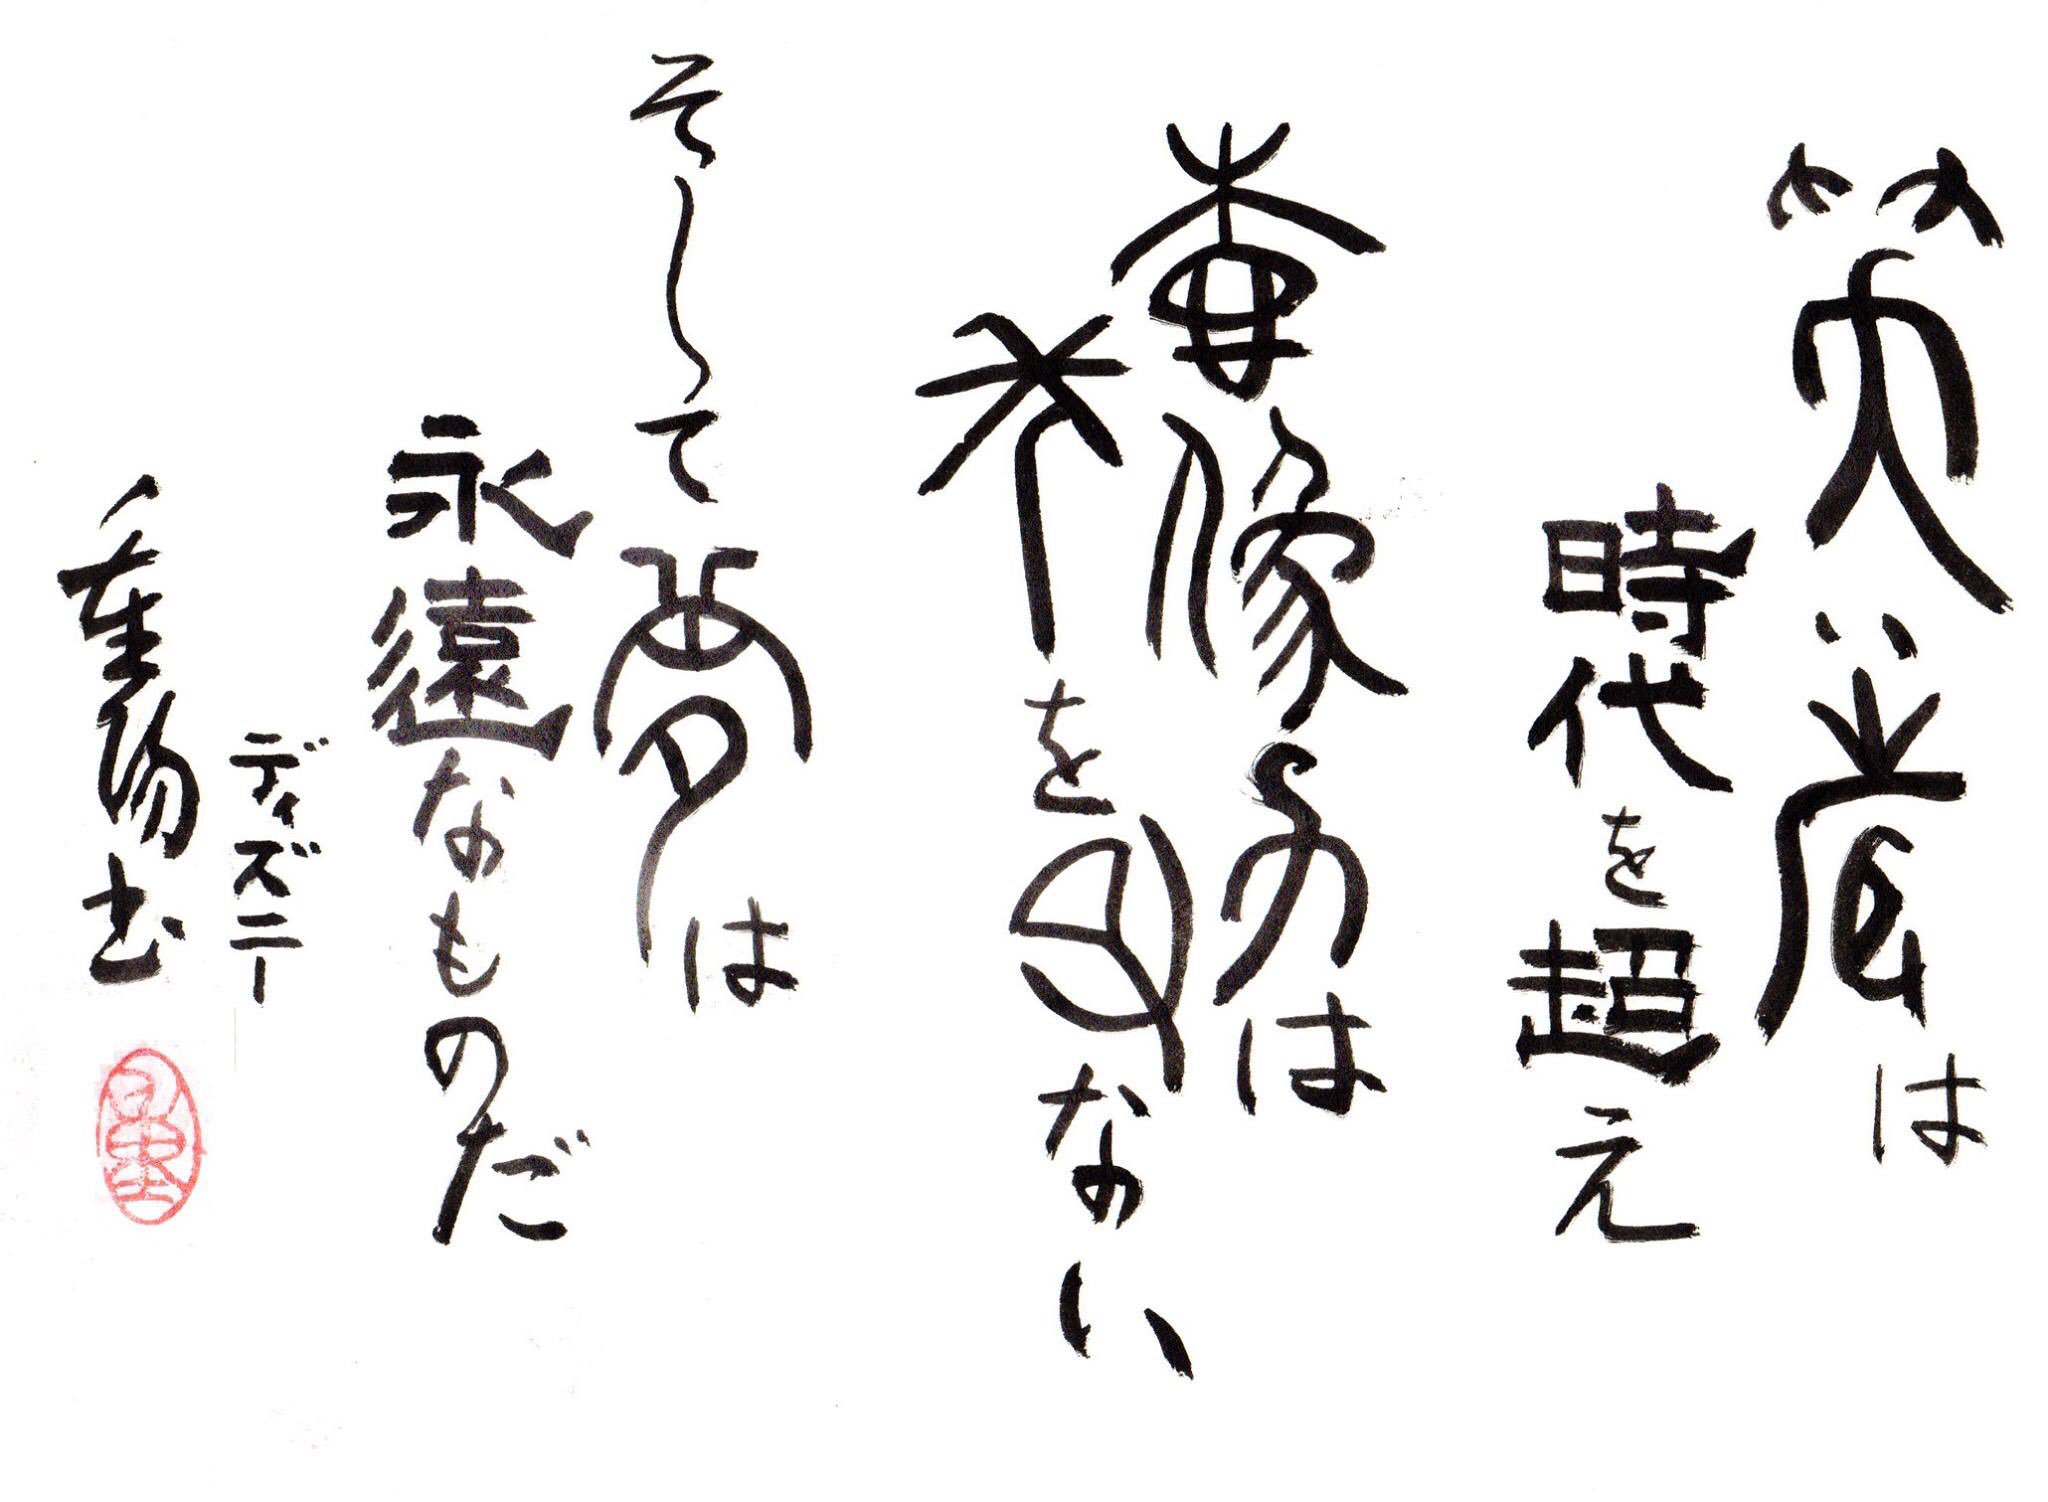 笑顔は
時代を超え
想像力は
年を取ない
そして夢は
永遠なものだ
ディズニー
重陽書